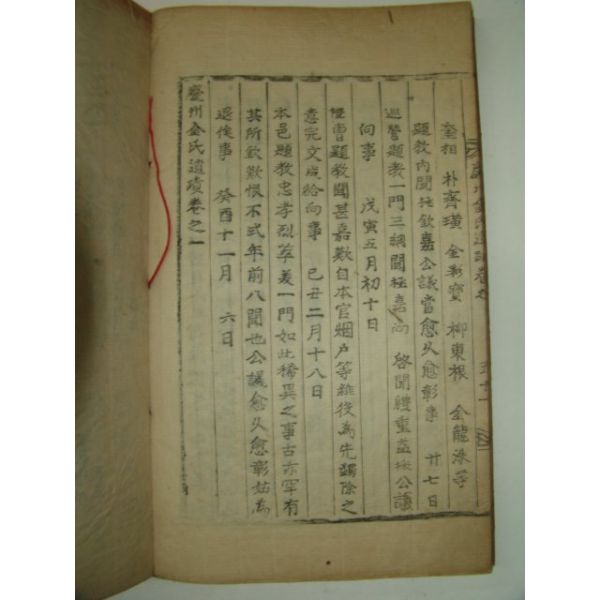 奎相 朴齊璜 金彩寶 柳東根 金龍洙等
題教內聞極欽嘉公議當愈久愈彰事 廿七日
巡營題教一門三綱聞極嘉尚 啓聞體重益採公議
向事 戊寅五月初十日
禮曹題教聞甚嘉歎自本官烟戶等雜役為先蠲除之
意完文成給向事 己丑二月十八日
本邑題教忠孝烈萃美一門如此稀異之事古亦罕有
其所欽歎恨不式年前入聞也公議愈久愈彰姑為
退俟事 癸酉十一月 六日
慶州金氏遺蹟卷之一